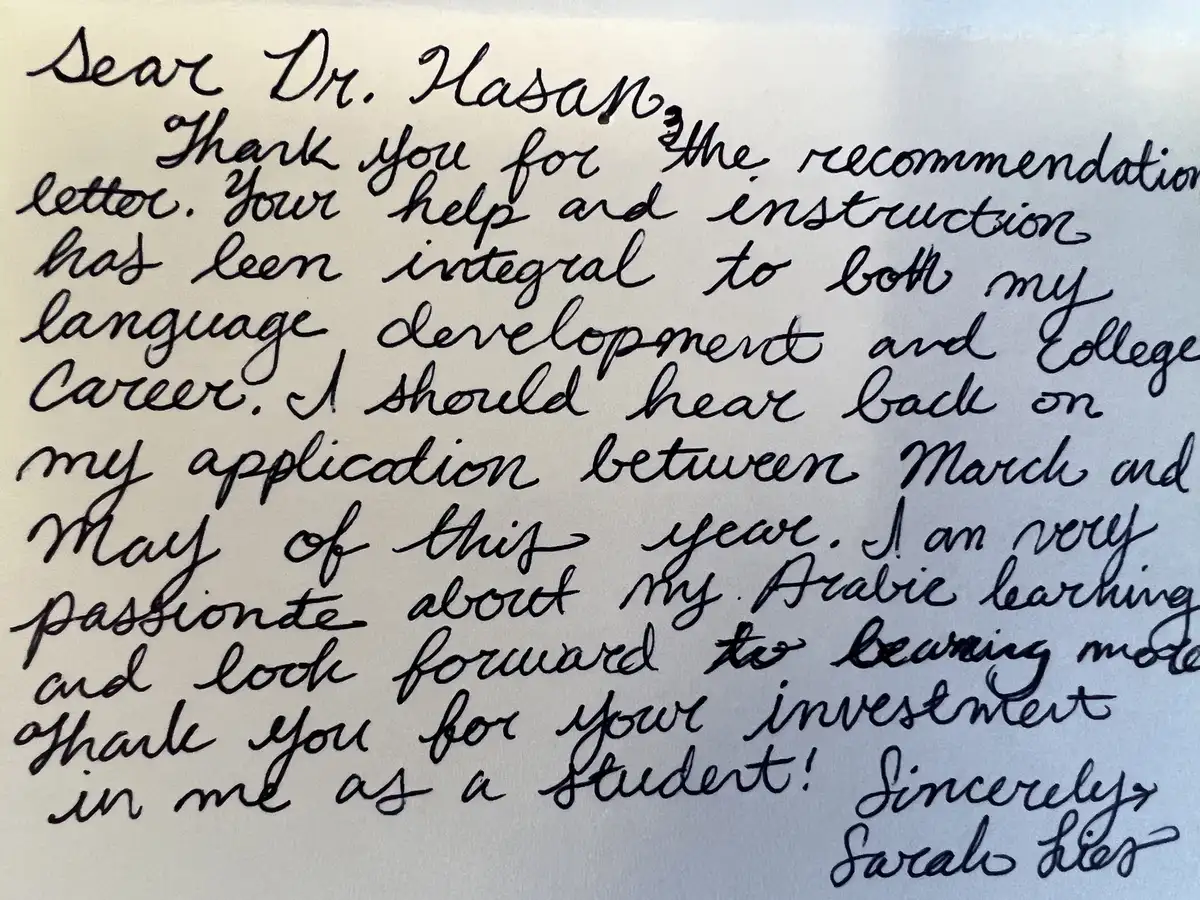 Dear Dr. Hasan,
Thank you for the recommendation
letter. Your help and instruction
has been integral to both my
language development and College
Career. I should hear back on
my application between March and
May of this year. I am very
passionate about my Arabic learning
and look forward to learning more
Thank you for your investment
in me as a student! Sincerely,
Sarah Lies